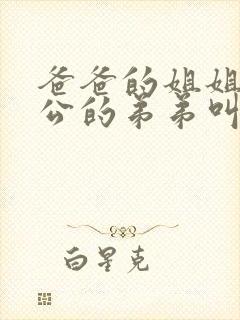 爸爸的姐姐
公的弟弟叫
白星克